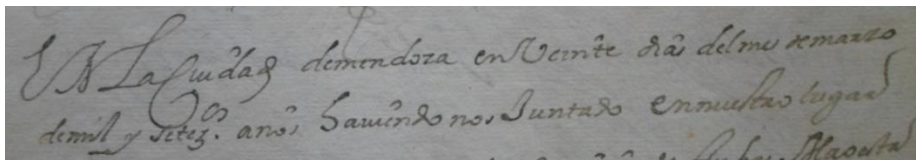 EN La Ciudad demendoza en Veinte dias del mes demarzo
demil y setez.os años haviendonos Juntado ennuestro lugar